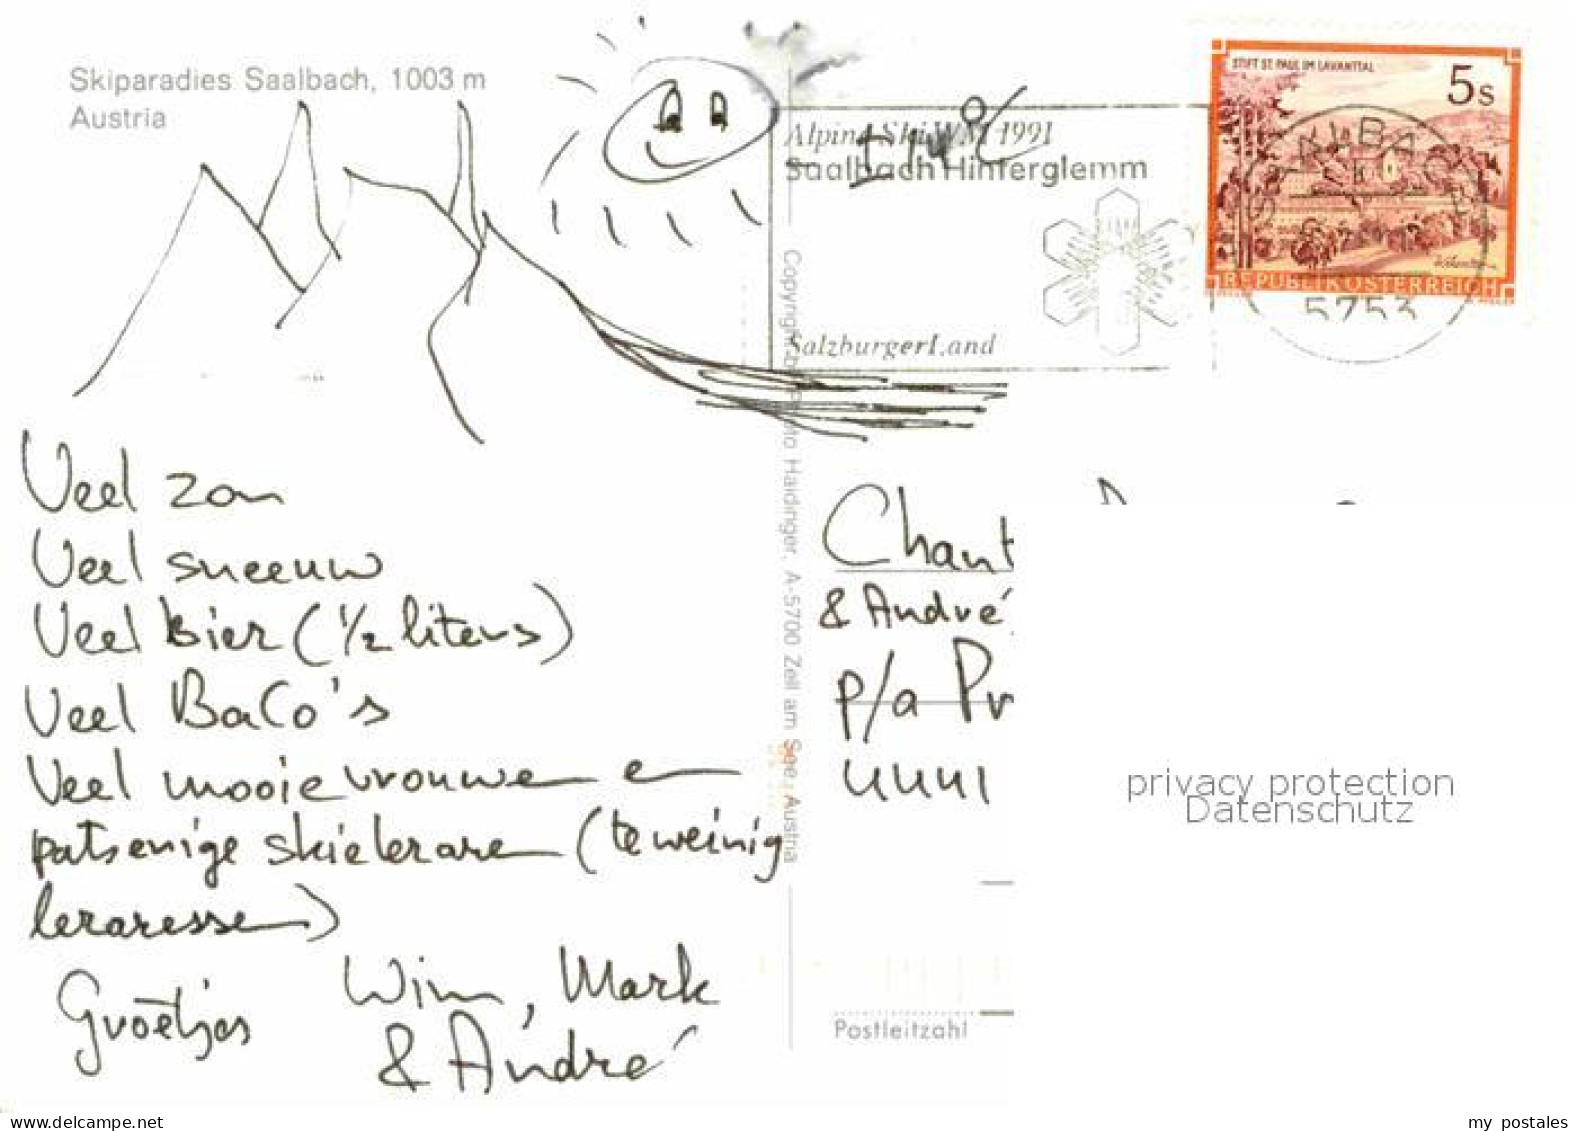 Skiparadies Saalbach, 1003 m
Austria
Alpine Ski WM 1991
Saalbach Hinterglemm
SalzburgerLand
STIFT ST. PAUL IM LAVANTTAL
5s
REPUBLIK ÖSTERREICH
SAALBACH
5753
Copyright by Photo Haidinger, A-5700 Zell am See, Austria
Veel zon
Veel sneeuw
Veel bier (1/2 liters)
Veel BaCo's
Veel mooie vrouwen en
patserige skieleraren (te weinig
leraressen)
Groetjes
Wim, Mark
& André
Chant
& André
p/a Pr
4441
privacy protection
Datenschutz
Postleitzahl
delcampe.net
my_postales